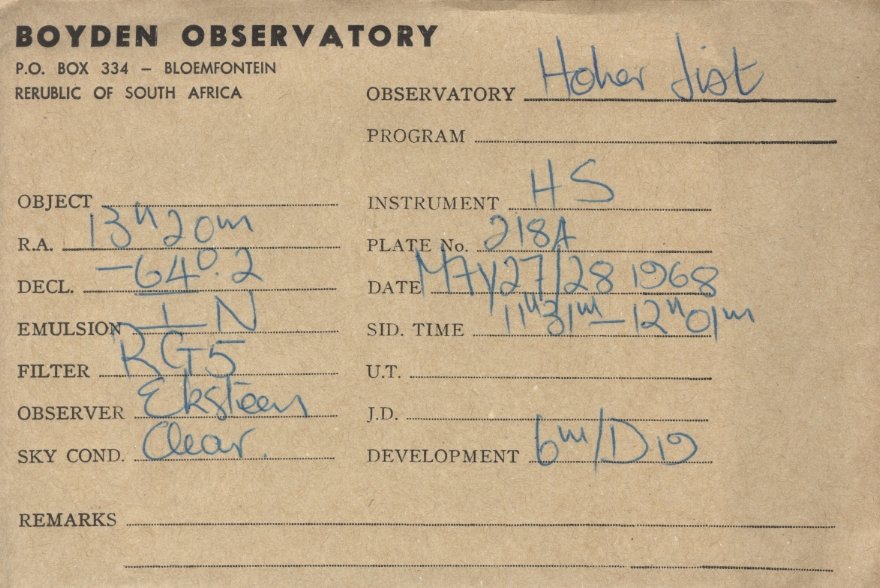 BOYDEN OBSERVATORY
P.O. BOX 334 – BLOEMFONTEIN
RERUBLIC OF SOUTH AFRICA
OBSERVATORY Hoher List
PROGRAM
OBJECT
INSTRUMENT HS
R.A. 13h20m
PLATE No. 218A
DECL. -64°.2
DATE MAY 27/28 1968
EMULSION I N
SID. TIME 11h31m – 12h01m
FILTER RG5
U.T.
OBSERVER Eksteen
J.D.
SKY COND. Clear.
DEVELOPMENT 6m/D19
REMARKS